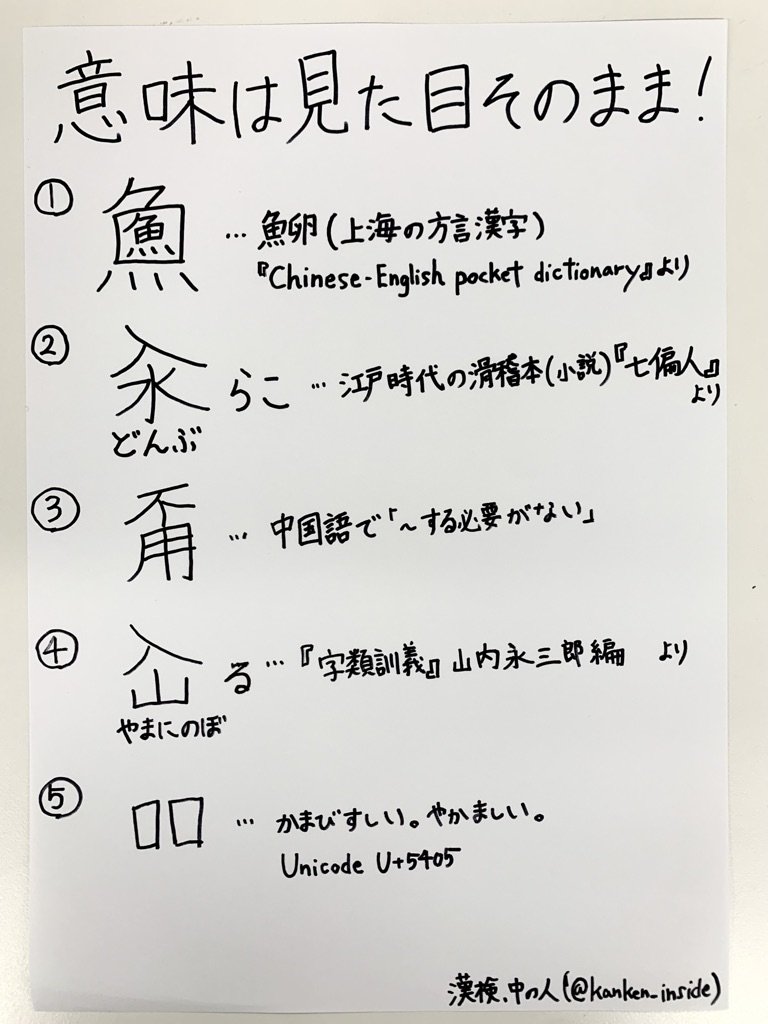 意味は見た目そのまま!
① … 魚卵(上海の方言漢字)
『Chinese-English pocket dictionary』より
② 汆らこ … 江戸時代の滑稽本(小説)『七偏人』
より
どんぶ
③ 甭 … 中国語で「~する必要がない」
④ る … 『字類訓義』山内永三郎編 より
やまにのぼ
⑤ 吅 … かまびすしい。やかましい。
Unicode U+5405
漢検.中の人(@kanken_inside)